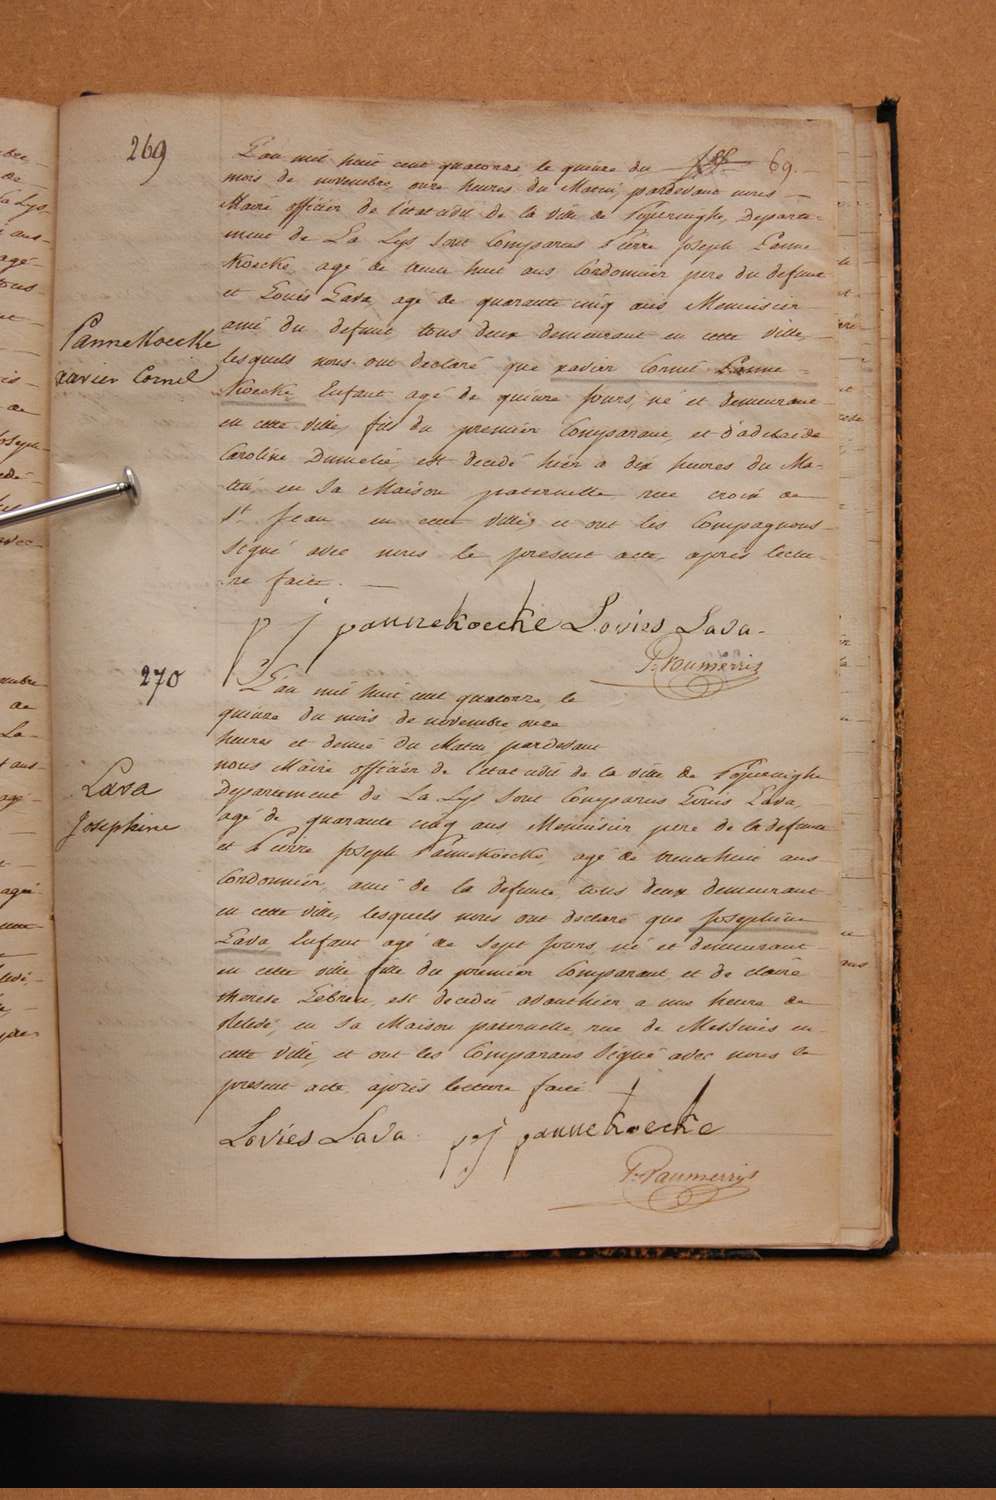 269
L'an mil huit cent quatorze, le quinze du 69.
mois de novembre, onze heures du Matin, pardevant nous
Maire officier de l'état civil de la ville de Poperinghe, Departe-
ment de La Lys sont Comparus Pierre Joseph Panne
Koecke, agé de trente huit ans Cordonnier pere du defunt
et Louis Lava, agé de quarante cinq ans Menuisier
ami du defunt, tous deux demeurant en cette ville,
lesquels nous ont declaré que xavier Cornil Panne-
Pannekoecke
xavier Cornil
Koecke, Enfant agé de quinze jours, né et demeurant
en cette ville, fils du premier Comparant, et d'adelaide
Caroline est decedé hier a dix heures du Ma-
tin, en sa Maison paternelle rue croix de
St. Jean en cette ville, et ont les Compagnons
signé avec nous le present acte, apres lectu-
re faite.
p j pannekoecke Lovies Lava.
270
L'an mil huit cent quatorze, le
quinze du mois de novembre, onze
heures et demie du Matin, pardevant
nous Maire officier de l'état civil de la ville de Poperinghe
Departement de La Lys sont Comparus Louis Lava,
Lava
Josephine
agé de quarante cinq ans Menuisier, pere de la defunte
et Pierre Joseph Pannekoecke, agé de trente huit ans
Cordonnier, ami de la defunte, tous deux demeurant
en cette ville, lesquels nous ont declaré que Josephine
Lava, Enfant agé de sept jours, né et demeurant
en cette ville fille du premier Comparant et de claire
therese Lebrun, est decedée avanthier a une heure de
en sa Maison paternelle, rue de Messines en
cette ville, et ont les Comparans signé avec nous le
present acte, apres lecture faite.
Lovies Lava. p j pannekoecke